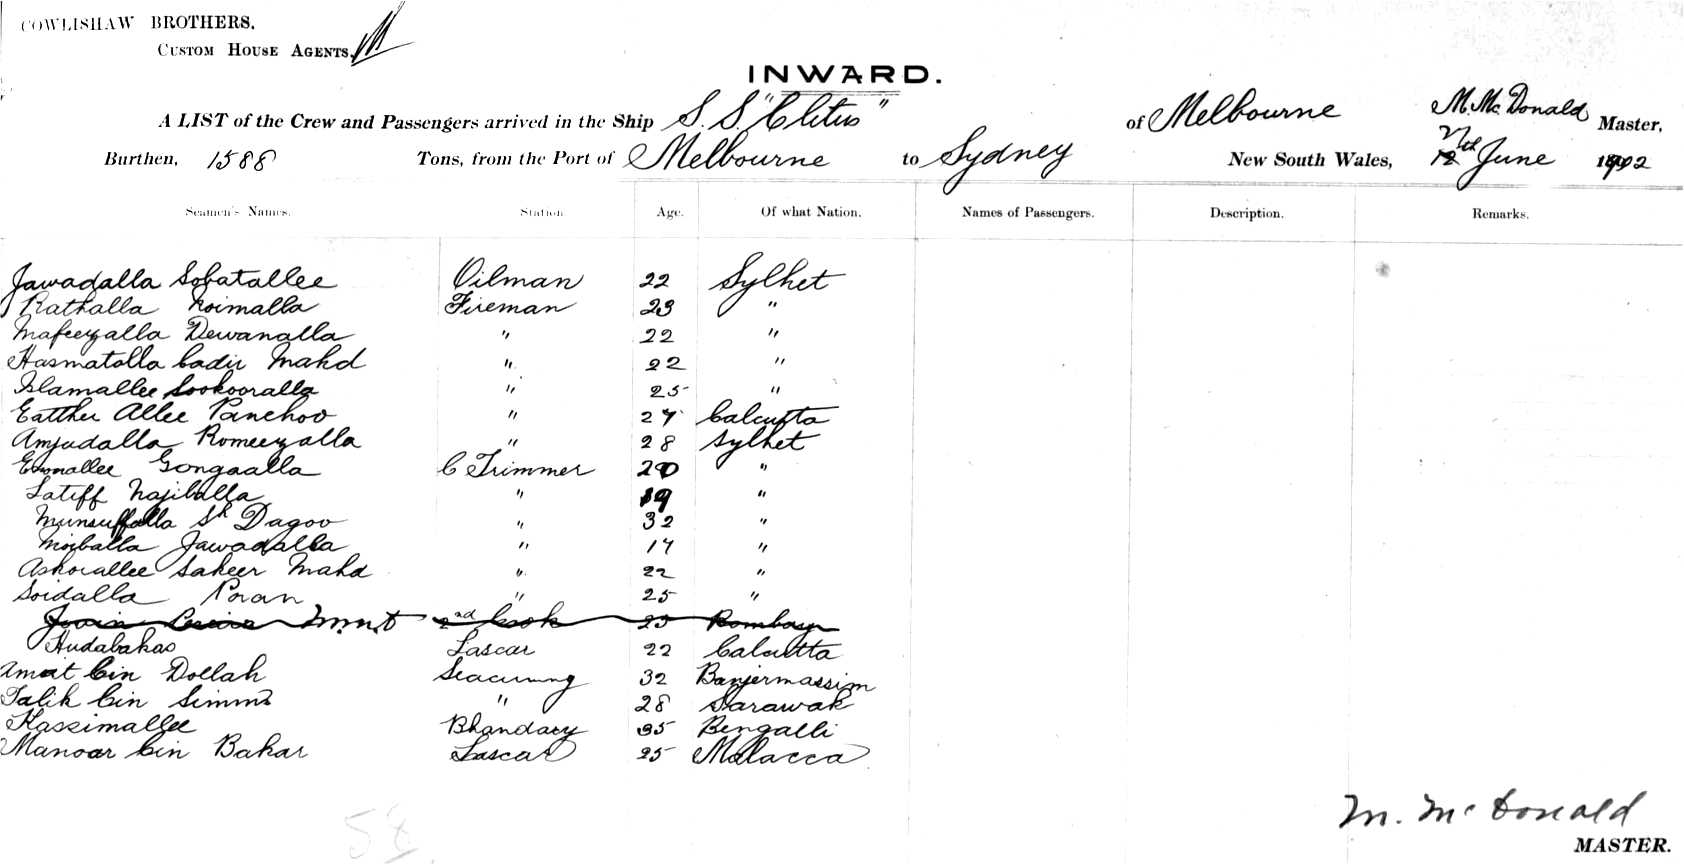 COWLISHAW BROTHERS.
CUSTOM HOUSE AGENTS.
INWARD.
A LIST of the Crew and Passengers arrived in the Ship S. S. "Clitus" of Melbourne M. McDonald Master,
Burthen, 1588 Tons, from the Port of Melbourne to Sydney New South Wales, 12th June 1902
Seamen's Names. Station Age. Of what Nation. Names of Passengers. Description. Remarks.
Jawadalla Sobatallee Oilman 22 Sylhet
Rathalla Noimalla Fireman 23 "
Mafeezalla Dewanalla " 22 "
Hasmatolla Cadir Mahd " 22 "
Islamallee Sookooralla " 25 "
Eatther Allee Panchoo " 27 Calcutta
Amjadalla Romeezalla " 28 Sylhet
Gongaalla C Trimmer 20 "
Latiff Najiballa " 19 "
Munsuffalla Sk Dagoo " 32 "
Moiballa Jawadalla " 17 "
Askorallee Sakeer Mahd " 22 "
Soidalla Poran " 25 "
2nd Cook 25 Bombay
Hudabakas Lascar 22 Calcutta
Amat bin Dollah Seacunny 32 Banjermassim
Talik bin Simmo " 28 Sarawak
Kassimallee Bhandary 35 Bengalli
Manoar bin Bakar Lascar 25 Malacca
M. McDonald
MASTER.
58